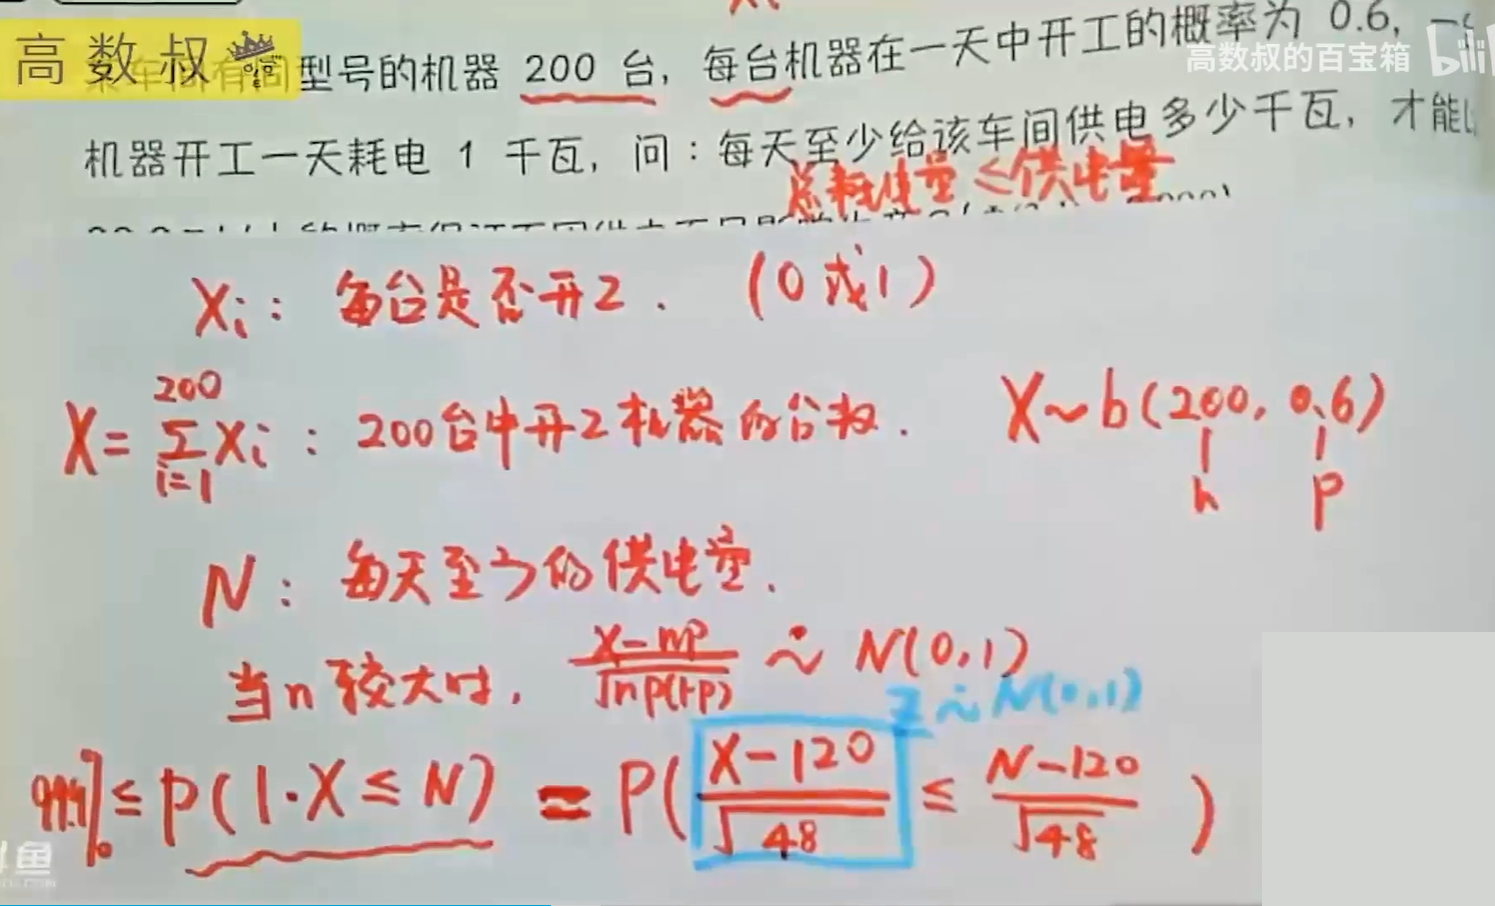 高数叔
高数叔的百宝箱 bili
型号的机器 200 台，每台机器在一天中开工的概率为 0.6，一
机器开工一天耗电 1 千瓦，问：每天至少给该车间供电多少千瓦，才能
总耗电量≤供电量
Xi： 每台是否开工. (0或1)
X=∑_{i=1}^{200}Xi：200台中开工机器的台数. X~b(200, 0.6)
n p
N：每天至少的供电量.
当n较大时, (X-np)/√(np(1-p)) ~̇ N(0,1)
Z~N(0,1)
99.9%≤P(1·X≤N) = P((X-120)/√48 ≤ (N-120)/√48)